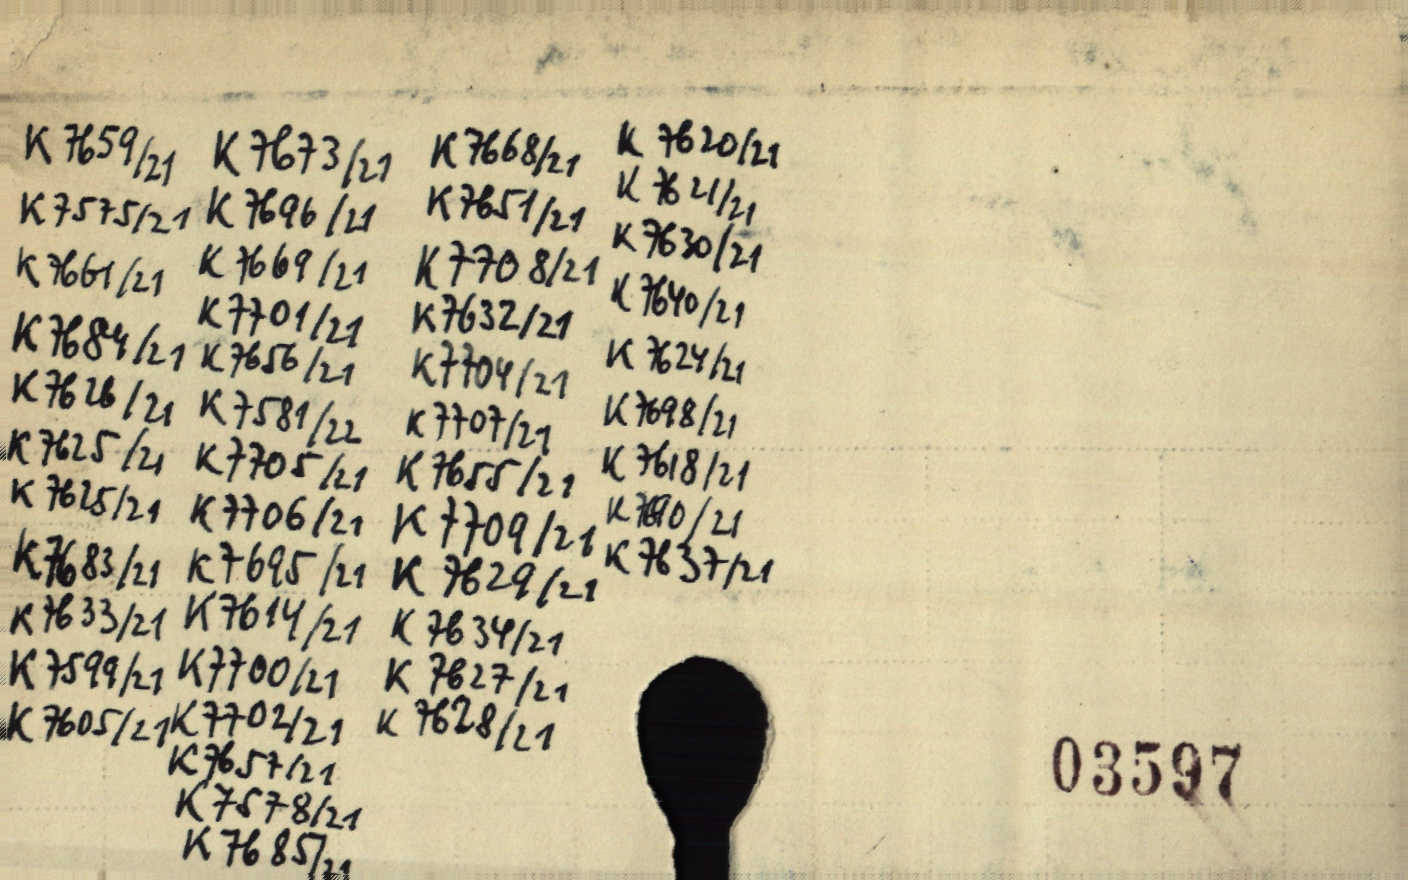 K 7659/21
K 7575/21
K 7661/21
K 7684/21
K 7626/21
K 7625/21
K 7625/21
K 7683/21
K 7633/21
K 7599/21
K 7605/21
K 7673/21
K 7696/21
K 7669/21
K 7701/21
K 7656/21
K 7581/22
K 7705/21
K 7706/21
K 7695/21
K 7614/21
K 7700/21
K 7702/21
K 7657/21
K 7578/21
K 7685/21
K 7668/21
K 7651/21
K 7708/21
K 7632/21
K 7704/21
K 7707/21
K 7655/21
K 7709/21
K 7629/21
K 7634/21
K 7627/21
K 7628/21
K 7620/21
K 7621/21
K 7630/21
K 7640/21
K 7624/21
K 7698/21
K 7618/21
K 7690/21
K 7637/21
03597